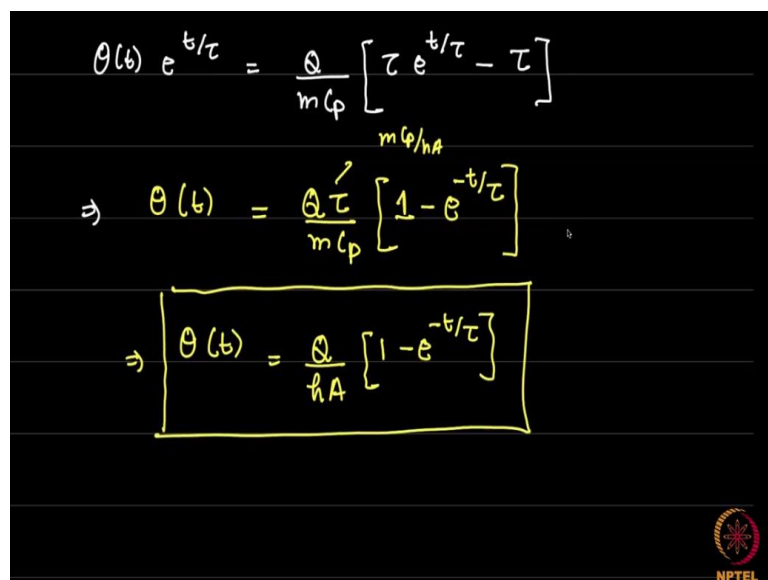 θ(t) e^{t/τ} = Q/mCp [τ e^{t/τ} - τ]
mCp/hA
⇒ θ(t) = Qτ/mCp [1 - e^{-t/τ}]
⇒ θ(t) = Q/hA [1 - e^{-t/τ}]
NPTEL